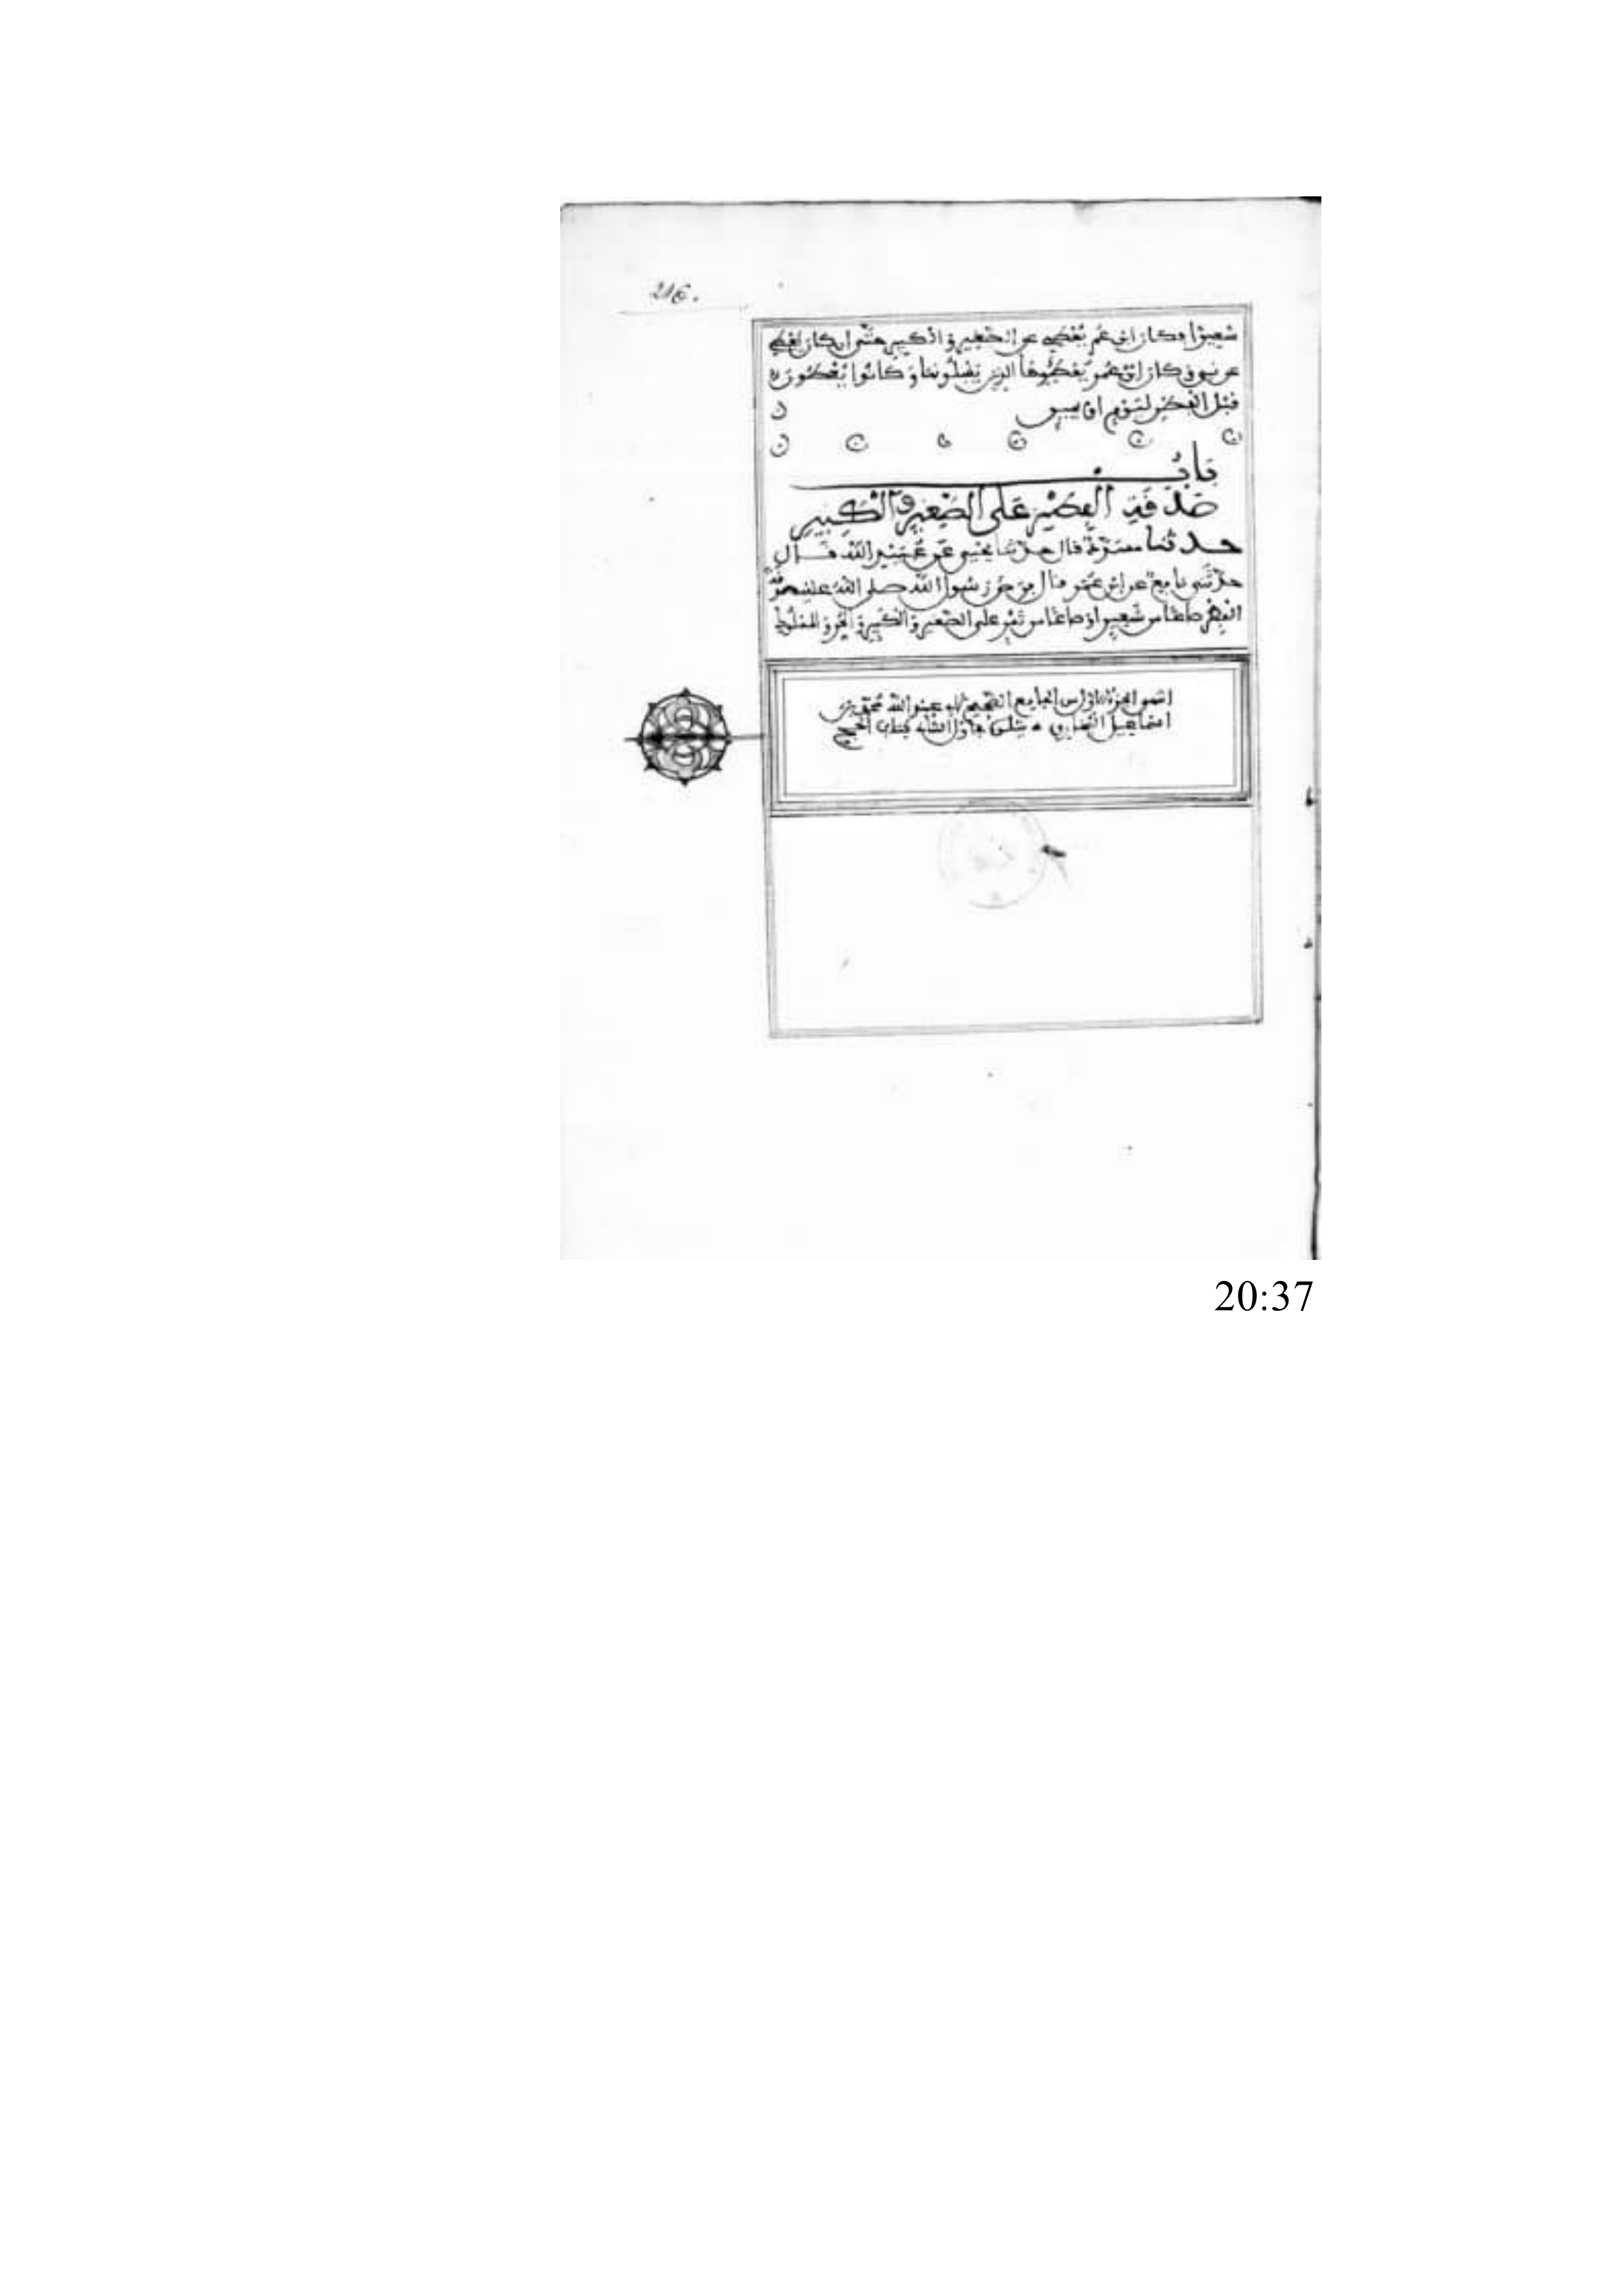 216.
شعيرا وكان ابن عمر يعطي عن الصغير والكبير حتى ان كان يعطي
عن بني وكان ابن عمر يعطيها الذين يقبلونها وكانوا يعطون
قبل الفطر بيوم او يومين
باب
صدقة الفطر على الصغير والكبير
حدثنا مسدد قال حدثنا يحيى عن عبيد الله قال
حدثني نافع عن ابن عمر قال فرض رسول الله صلى الله عليه صدقة
الفطر صاعا من شعير او صاعا من تمر على الصغير والكبير والحر والمملوك
الجزء الاول من الجامع الصحيح عبد الله محمد بن
اسماعيل البخاري اول كتاب الحج
20:37